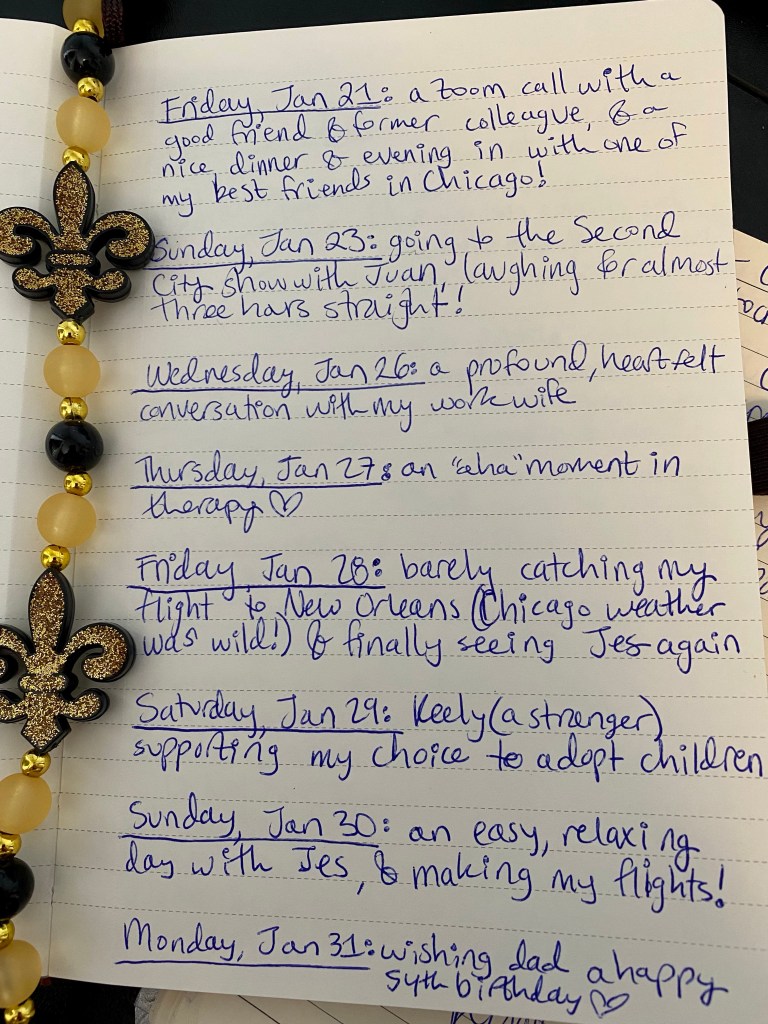 Friday, Jan 21: a zoom call with a
good friend & former colleague, & a
nice dinner & evening in with one of
my best friends in Chicago!
Sunday, Jan 23: going to the Second
City show with Juan, laughing for almost
three hars straight!
Wednesday, Jan 26: a profound, heartfelt
conversation with my work wife
Thursday, Jan 27: an "aha" moment in
therapy ♡
Friday Jan 28: barely catching my
flight to New Orleans (Chicago weather
was wild!) & finally seeing Jes again
Saturday, Jan 29: Keely (a stranger)
supporting my choice to adopt children
Sunday, Jan 30: an easy, relaxing
day with Jes, & making my flights!
Monday, Jan 31: wishing dad a happy
54th birthday ♡